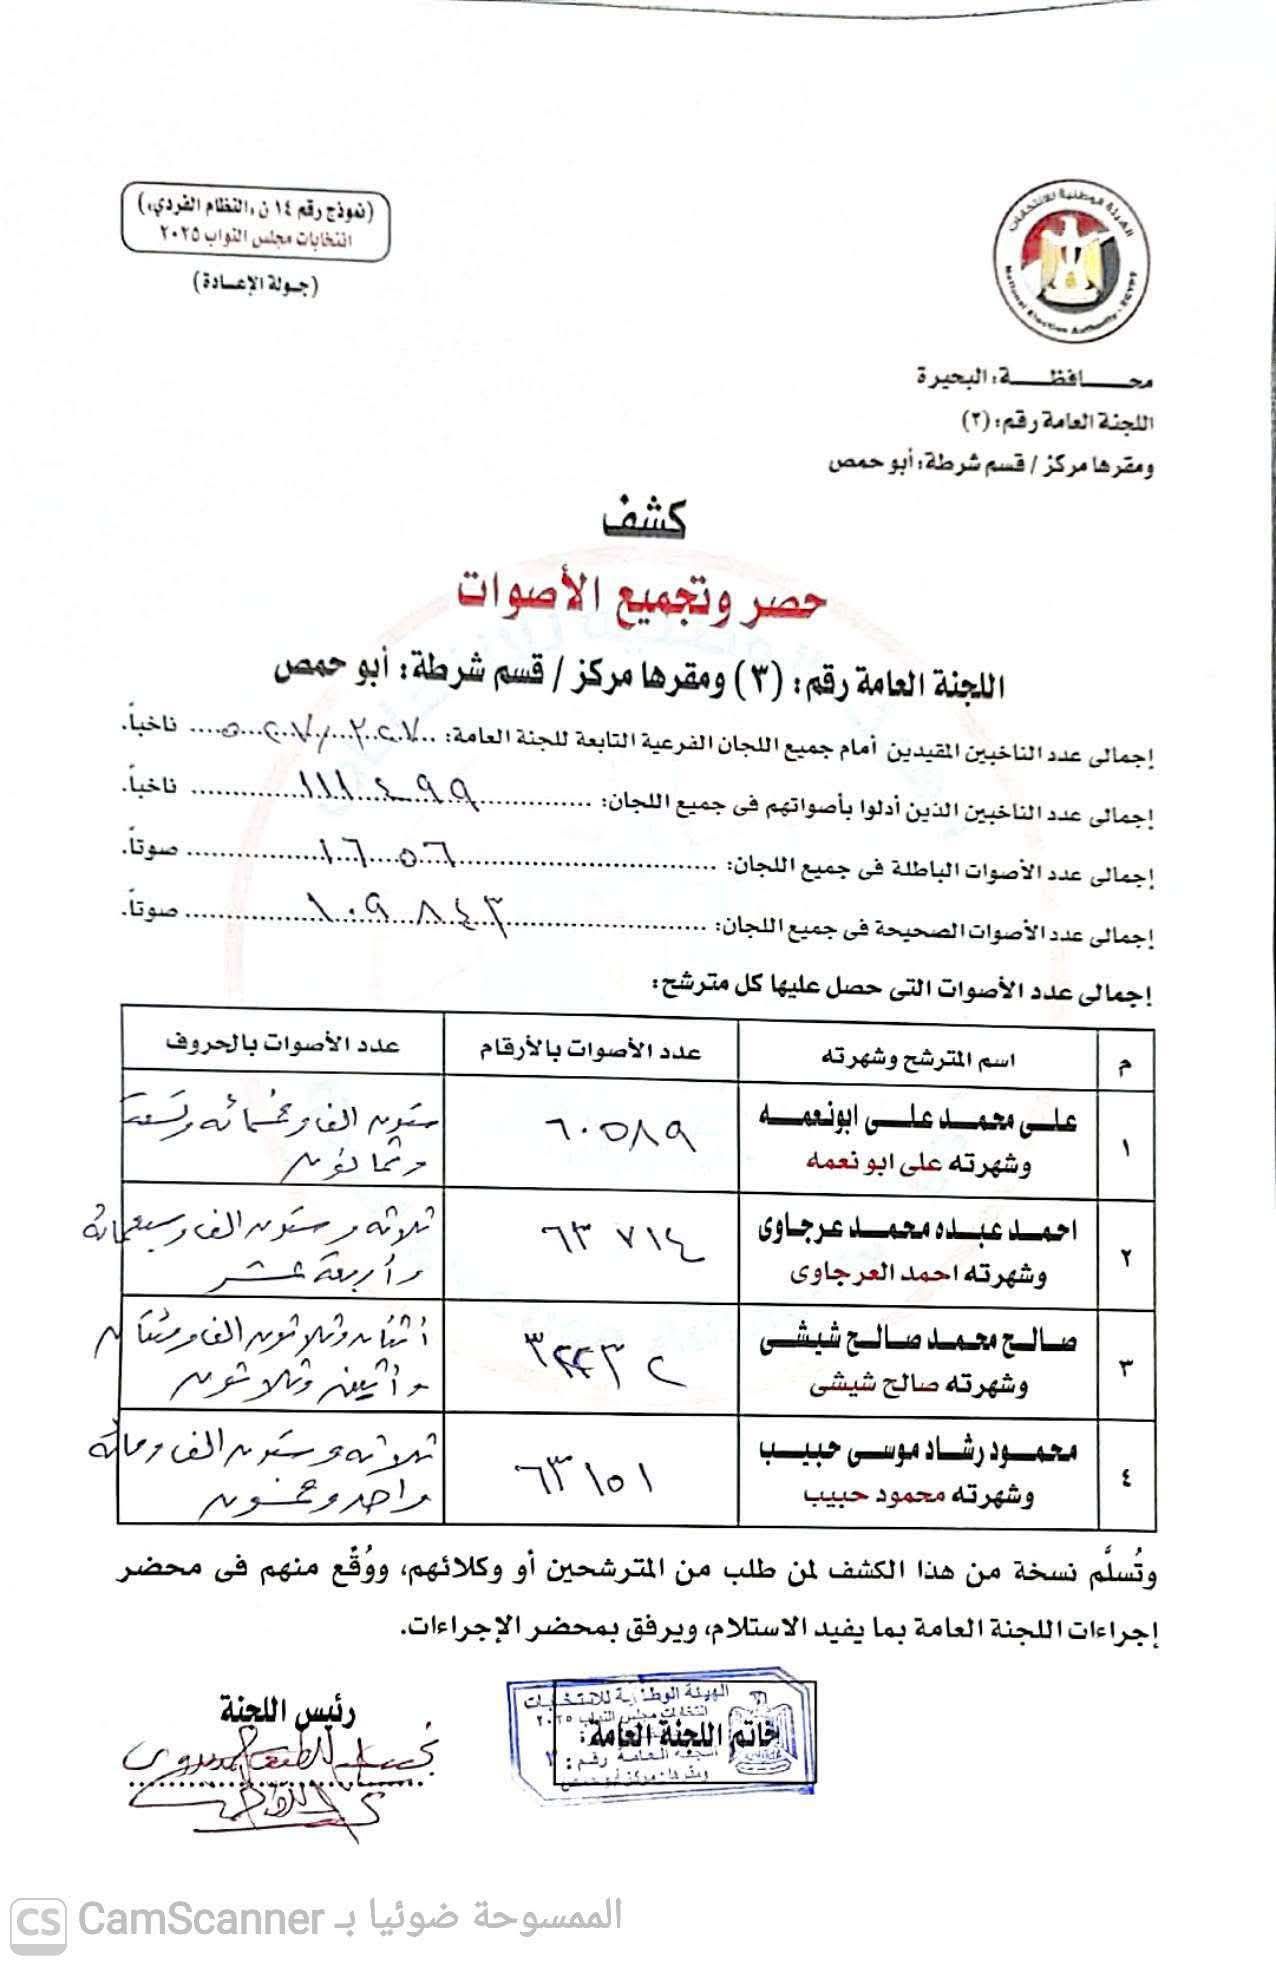 الهيئة الوطنية للانتخابات
National Election Authority - EGYPT
(نموذج رقم ١٤ ن «النظام الفردي»)
انتخابات مجلس النواب ٢٠٢٥
(جولة الإعادة)
محـــافظـــة: البحيرة
اللجنة العامة رقم: (٣)
ومقرها مركز / قسم شرطة: أبو حمص
كشف
حصر وتجميع الأصوات
اللجنة العامة رقم: (٣) ومقرها مركز / قسم شرطة: أبو حمص
إجمالى عدد الناخبين المقيدين أمام جميع اللجان الفرعية التابعة للجنة العامة: ناخباً.
إجمالى عدد الناخبين الذين أدلوا بأصواتهم فى جميع اللجان: ١١١٤٩٩ ناخباً.
إجمالى عدد الأصوات الباطلة فى جميع اللجان: ١٦٥٦ صوتاً.
إجمالى عدد الأصوات الصحيحة فى جميع اللجان: ١٠٩٨٤٣ صوتاً.
إجمالى عدد الأصوات التى حصل عليها كل مترشح:
م اسم المترشح وشهرته عدد الأصوات بالأرقام عدد الأصوات بالحروف
١ علـى محمـد علـى ابونعمـه ٦٠٥٨٩ ستون الف وخمسمائه وتسعة
وشهرته على ابو نعمه وثمانون
٢ احمـد عبـده محمـد عرجاوى ٦٣٧١٤ ثلاثه وستون الف وسبعمائه
وشهرته احمد العرجاوى وأربعة عشر
٣ صالـح محمـد صالـح شيشى ٣٢٢٣٢ أثنان وثلاثون الف ومئتان
وشهرته صالح شيشى وأثنين وثلاثون
٤ محمـود رشـاد موسـى حبيـب ٦٣١٥١ ثلاثه وستون الف ومائه
وشهرته محمود حبيب واحد وخمسون
وتُسلَّم نسخة من هذا الكشف لمن طلب من المترشحين أو وكلائهم، ووُقِّع منهم فى محضر
إجراءات اللجنة العامة بما يفيد الاستلام، ويرفق بمحضر الإجراءات.
رئيس اللجنة
خاتم اللجنة العامة:
الهيئة الوطنية للانتخابات
انتخابات مجلس النواب ٢٠٢٥
اللجنة العامة رقم: ٣
ومقرها: مركز أبو حمص
CS CamScanner الممسوحة ضوئيا بـ